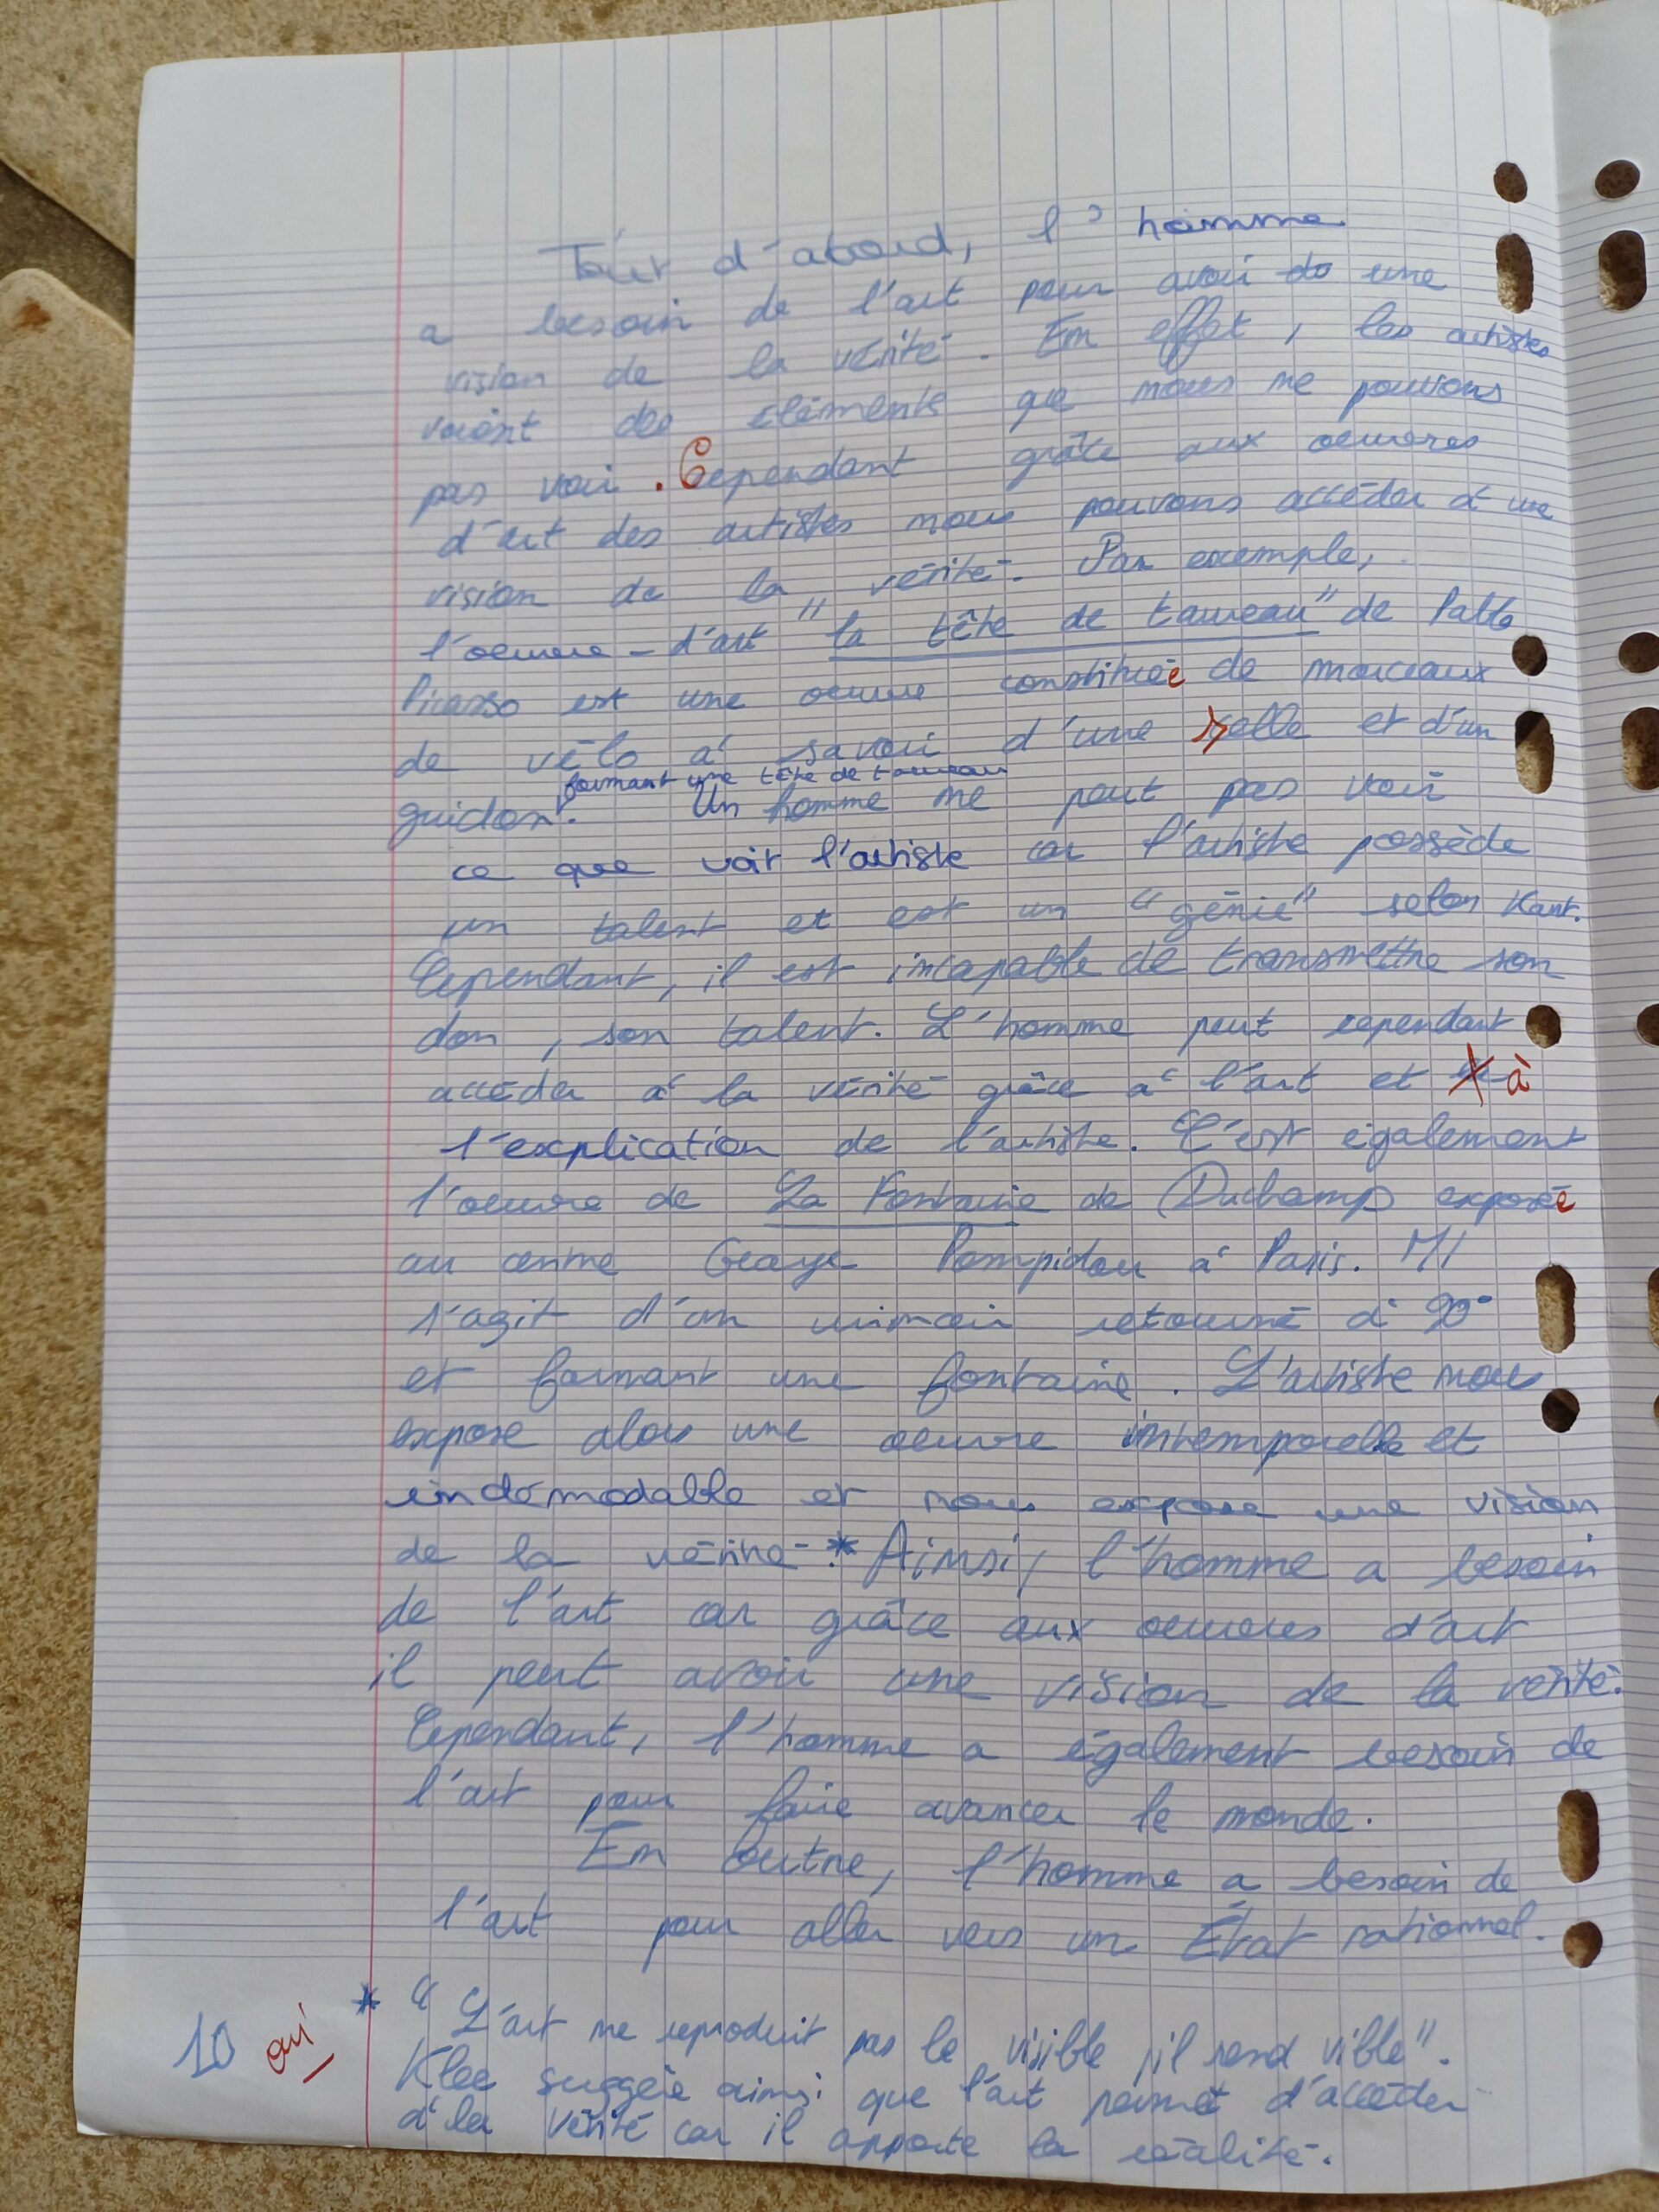 Tout d'abord, l'homme
a besoin de l'art pour avoir une
vision de la vérité. En effet, les artistes
voient des éléments que nous ne pouvons
pas voir. Cependant grâce aux oeuvres
d'art des artistes nous pouvons accéder à une
vision de la vérité. Par exemple,
l'oeuvre-d'art "la tête de taureau" de Pablo
Picasso est une oeuvre constituée de morceaux
de vélo à savoir d'une selle et d'un
formant une tête de taureau
guidon. Un homme ne peut pas voir
ce que voit l'artiste car l'artiste possède
un talent et est un "génie" selon Kant.
Cependant, il est incapable de transmettre son
don, son talent. L'homme peut cependant
accéder à la vérité grâce à l'art et à
l'explication de l'artiste. C'est également
l'oeuvre de La Fontaine de Duchamp exposée
au centre George Pompidou à Paris. Il
s'agit d'un urinoir retourné à 90°
et formant une fontaine. L'artiste nous
expose alors une oeuvre intemporelle et
indémodable et nous expose une vision
de la vérité.* Ainsi, l'homme a besoin
de l'art car grâce aux oeuvres d'art
il peut avoir une vision de la vérité.
Cependant, l'homme a également besoin de
l'art pour faire avancer le monde.
En outre, l'homme a besoin de
l'art pour aller vers un État rationnel.
* "L'art ne reproduit pas le visible, il rend vible".
10 oui
Klee suggère ainsi que l'art permet d'accéder
à la vérité car il apporte la réalité.